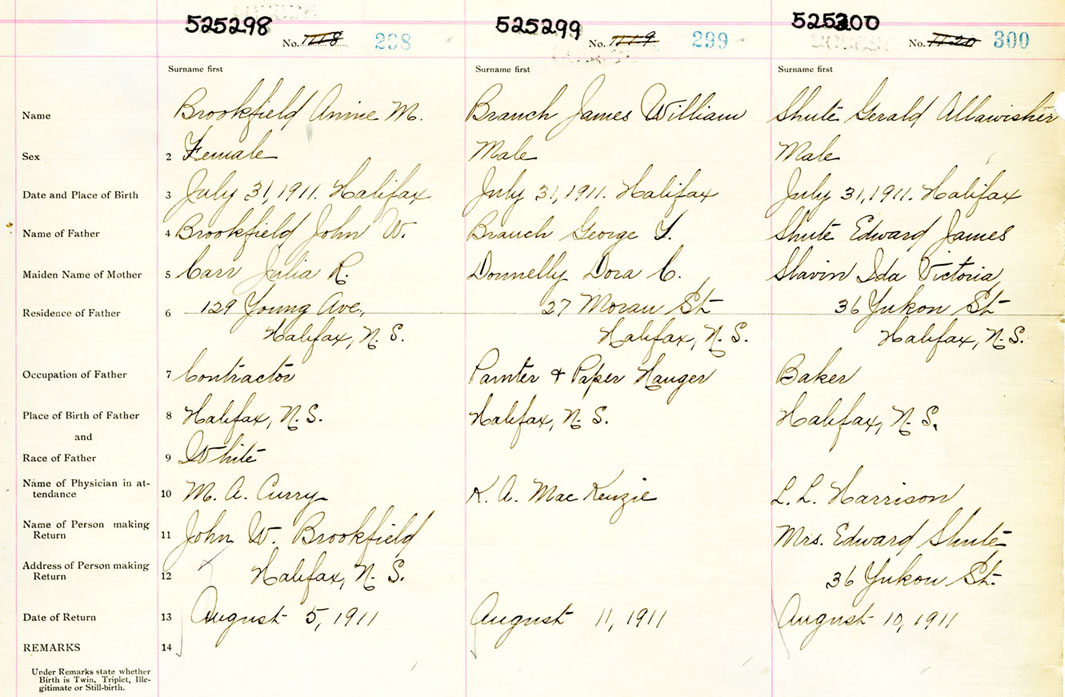 525298 525299 525300
No. 1118 298 No. 1119 299 No. 1120 300
Surname first Surname first Surname first
Name Brookfield Annie M. Branch James William Shute Gerald Allawisher
Sex 2 Female Male Male
Date and Place of Birth 3 July 31, 1911. Halifax July 31, 1911. Halifax July 31, 1911. Halifax
Name of Father 4 Brookfield John W. Branch George Y. Shute Edward James
Maiden Name of Mother 5 Carr Julia R. Donnelly Dora C. Slavin Ida Victoria
Residence of Father 6 129 Young Ave., 27 Moran St 36 Yukon St
Halifax, N.S. Halifax, N.S. Halifax, N.S.
Occupation of Father 7 Contractor Painter + Paper Hanger Baker
Place of Birth of Father 8 Halifax, N.S. Halifax, N.S. Halifax, N.S.
and
Race of Father 9 White
Name of Physician in at-
tendance 10 M. A. Curry K. A. MacKenzie L. L. Harrison
Name of Person making
Return 11 John W. Brookfield Mrs. Edward Shute
Address of Person making
Return 12 Halifax, N.S. 36 Yukon St.
Date of Return 13 August 5, 1911 August 11, 1911 August 10, 1911
REMARKS 14
Under Remarks state whether
Birth is Twin, Triplet, Ille-
gitimate or Still-birth.